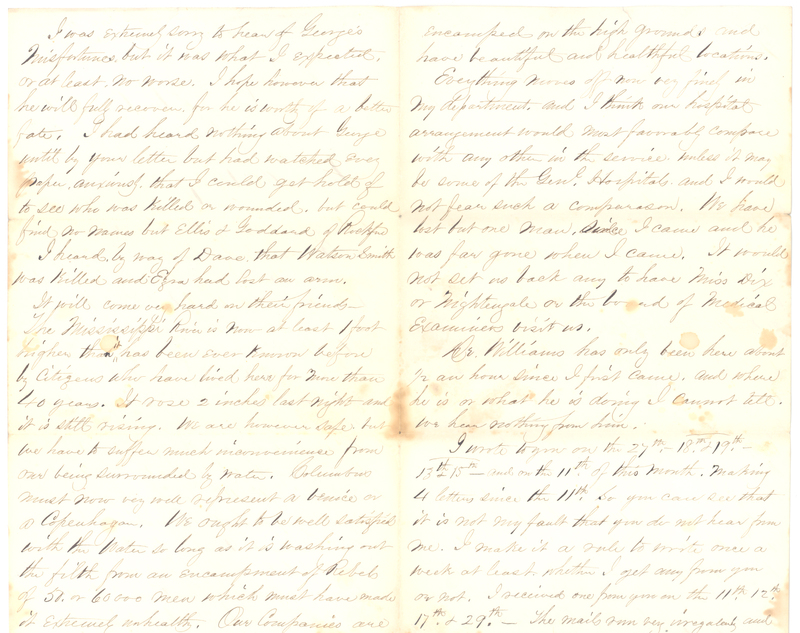 I was Extremely sorry to hear of George's
Misfortunes, but it was what I expected,
or at least, no worse. I hope however that
he will fully recover, for he is worthy of a better
fate. I had heard nothing about George
until by your letter but had watched every
paper, anxiously, that I could get hold of
to see who was Killed or wounded, but could
find no names but Ellis & Goddard of
I heard, by way of Dave, that Watson Smith
was Killed and Ezra had lost an arm.
It will come very hard on their friends—
The Mississippi River is now at least 1 foot
higher than it has been ever known before
by Citizens who have lived here for more than
40 years. It rose 2 inches last night and
it is still rising. We are however safe but
we have to suffer much inconvenience from
our being surrounded by water. Columbus
must now very well represent a Venice or
a Copenhagen. We ought to be well satisfied
with the Water so long as it is washing out
the filth from an Encampment of Rebel
of 50. or 60000 men which must have made
it Extremely unhealthy. Our Companies are
encamped on the high grounds and
have beautiful and healthful locations.
Everything moves off now very finely in
my department, and I think our hospital
arrangement would most favorably compare
with any other in the service unless it may
be some of the Genl. Hospitals. and I would
not fear such a comparason. We have
lost but one man, since I came and he
was far gone when I came. It would
not set us back any to have Miss Dix
or Nightengale or the board of Medical
Examiners visit us.
Dr. Williams has only been here about
1/2 an hour since I first came, and where
he is or what he is doing I cannot tell.
We hear nothing from him.
I wrote to you on the 27th— 18th & 19th—
13th 15th— and on the 11th of this month, making
4 letters since the 11th. so you can see that
it is not my fault that you do not hear from
me. I make it a rule to write once a
week at least, whether I get any from you
or not. I received one from you on the 11th 12th
17th & 29th— The mails run very irregularly and